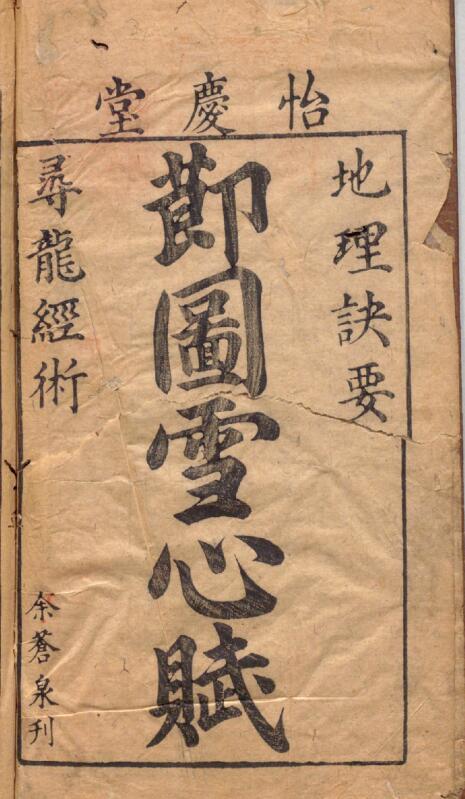 怡慶堂
地理訣要
莭圖雪心賦
尋龍經術
余蒼泉刋